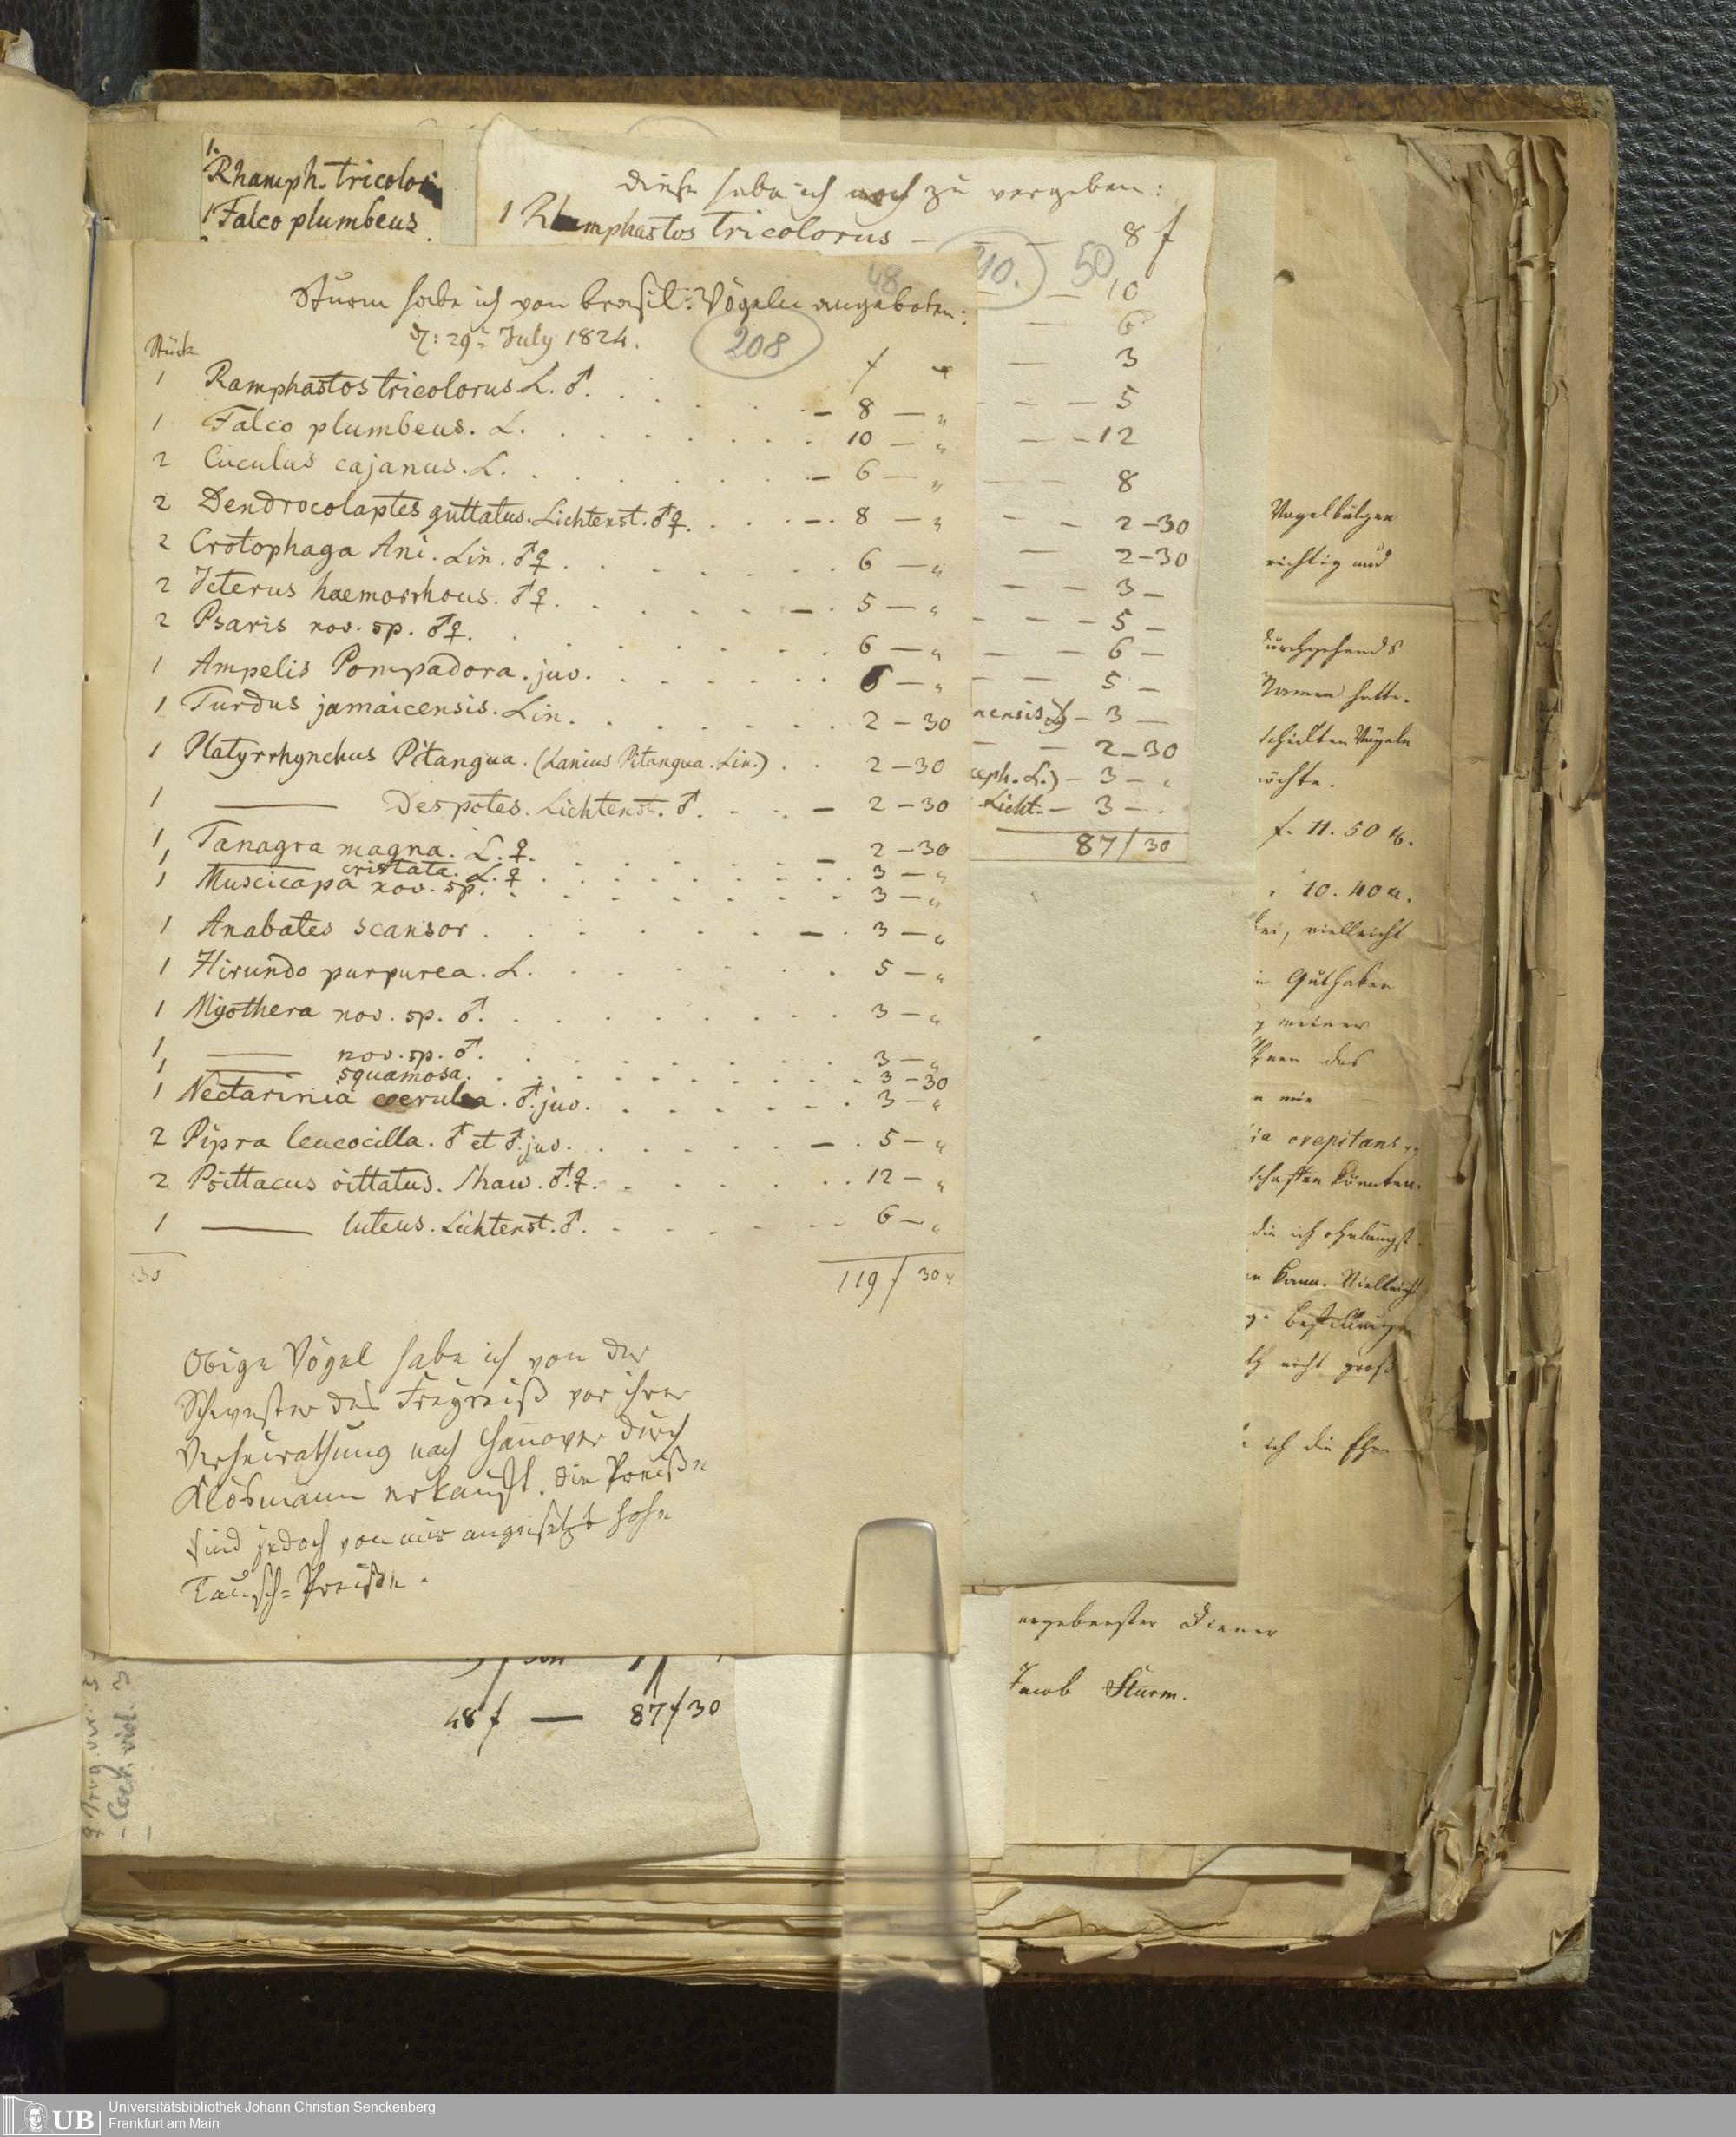 1. Rhamph. tricolor
1 Falco plumbeus
diese habe ich noch zu vergeben:
1 Rhamphastos tricolorus — — — 8 f
210. 50
— 10
— 6
— 3
— — — 5
— — 12
— — 8
— — 2–30
— 2–30
— — 3 —
— — — 5 —
— — 6 —
— — 5 —
nensis L) — 3 —
— — 2–30
ceph. L.) — 3 — "
Licht. — 3 — .
87 f 30
48
Sturm habe ich von brasil: Vögeln angeboten:
d: 29n July 1824.
208
Stück f x
1 Ramphastos tricolorus L. ♂. — 8 — "
1 Falco plumbeus. L. 10 — "
2 Cuculus cajanus. L. — 6 — "
2 Dendrocolaptes guttatus. Lichtenst. ♂♀. — 8 — "
2 Crotophaga Ani. Lin. ♂♀. 6 — "
2 Icterus haemorrhous. ♂♀. — 5 — "
2 Psaris nov. sp. ♂♀. 6 — "
1 Ampelis Pompadora. juv. 6 — "
1 Turdus jamaicensis. Lin. 2 – 30
1 Platyrrhynchus Pitangua. (Lanius Pitangua. Lin.) 2 – 30
1 ——— Despotes. Lichtenst. ♂. — 2 – 30
1 Tanagra magna. L. ♀. — 2 – 30
1 ——— cristata. L. ♀ 3 — "
1 Muscicapa nov. sp. 3 — "
1 Anabates scansor. — 3 — "
1 Hirundo purpurea. L. 5 — "
1 Myothera nov. sp. ♂. 3 — "
1 ——— nov. sp. ♂. 3 — "
1 ——— squamosa. 3 – 30
1 Nectarinia coerulea. ♂. juv. 3 — "
2 Pipra leucocilla. ♂ et ♂. juv. — 5 — "
2 Psittacus vittatus. Shaw. ♂.♀. 12 — "
1 ——— luteus. Lichtenst. ♂. 6 — "
30 119 f 30 x
Obige Vögel habe ich von der
Schwester des Freyreiß vor ihrer
Verheirathung nach Hanover durch
erkauft. Die Preiße
sind jedoch von mir angesetzt hohe
Tausch-Preiße.
Vogelbälgen
richtig und
durchgehends
Namen hatte.
schickten Vögeln
möchte.
f. 11. 50 x.
10. 40 x.
bei, vielleicht
Guthaben
meiner
Ihnen das
mir
ia crepitans
schaffen könnten.
die ich ohnlängst
kann. Vielleicht
Bestellungen
nicht groß
ich die Ehre
ergebenster Diener
Jacob Sturm.
48 f — 87 f 30
Universitätsbibliothek Johann Christian Senckenberg
Frankfurt am Main
UB